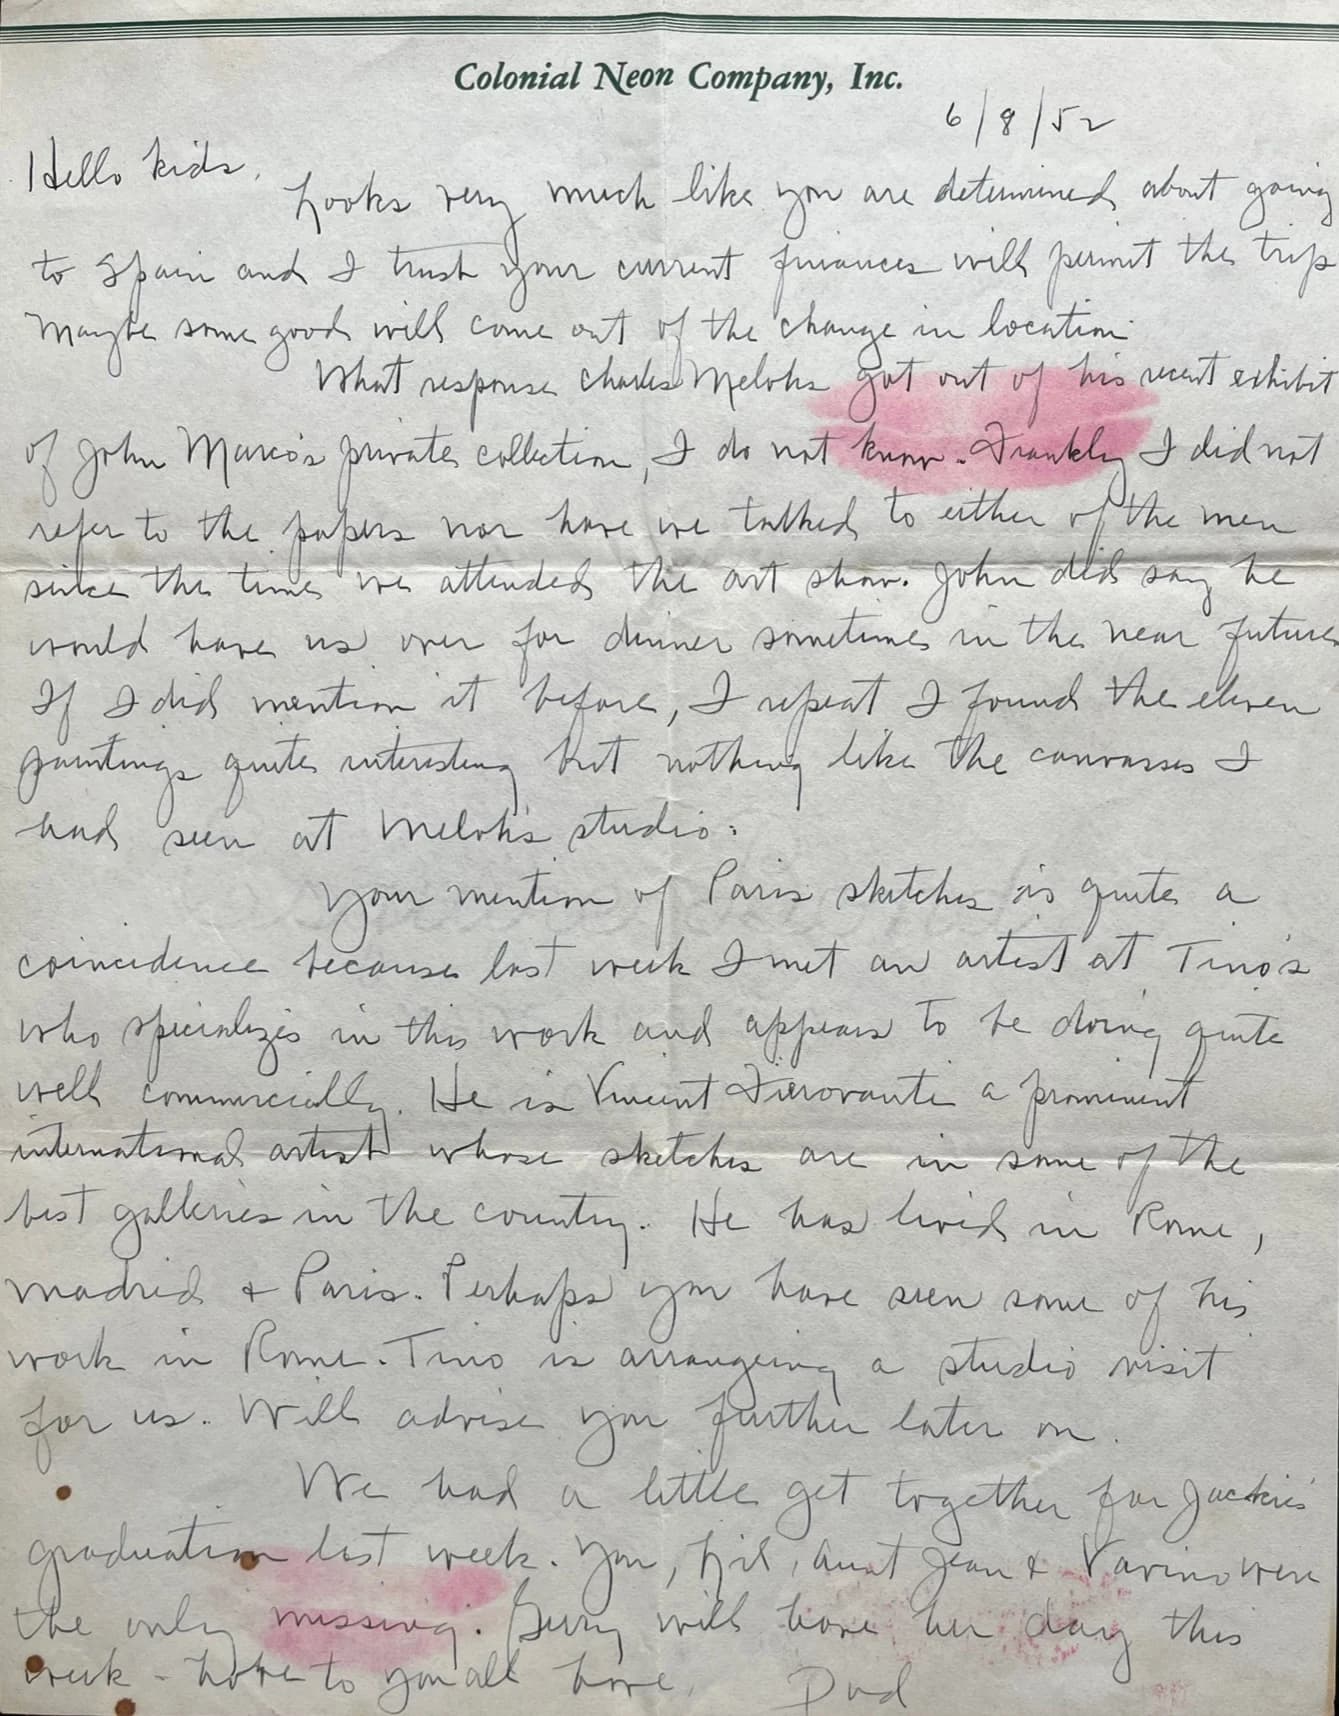 Colonial Neon Company, Inc.
6/8/52
Hello kids,
Looks very much like you are determined about going
to Spain and I trust your current finances will permit the trip
Maybe some good will come out of the change in location.
What response Charles Melohs got out of his recent exhibit
of John Marco's private collection, I do not know. Frankly I did not
refer to the papers nor have we talked to either of the men
since the time we attended the art show. John did say he
would have us over for dinner sometime in the near future
If I did mention it before, I repeat I found the eleven
paintings quite interesting but nothing like the canvasses I
had seen at Meloh's studio.
Your mention of Paris sketches is quite a
coincidence because last week I met an artist at Tino's
who specializes in this work and appears to be doing quite
well commercially. He is Vincent Fierovanti a prominent
international artist whose sketches are in some of the
best galleries in the country. He has lived in Rome,
Madrid & Paris. Perhaps you have seen some of his
work in Rome. Tino is arrangeing a studio visit
for us. Will advise you further later on.
We had a little get together for Jackie's
graduation last week. You, Lil, Aunt Jean & Vavino were
the only missing. Gerry will have her day this
week - to you all
Dad